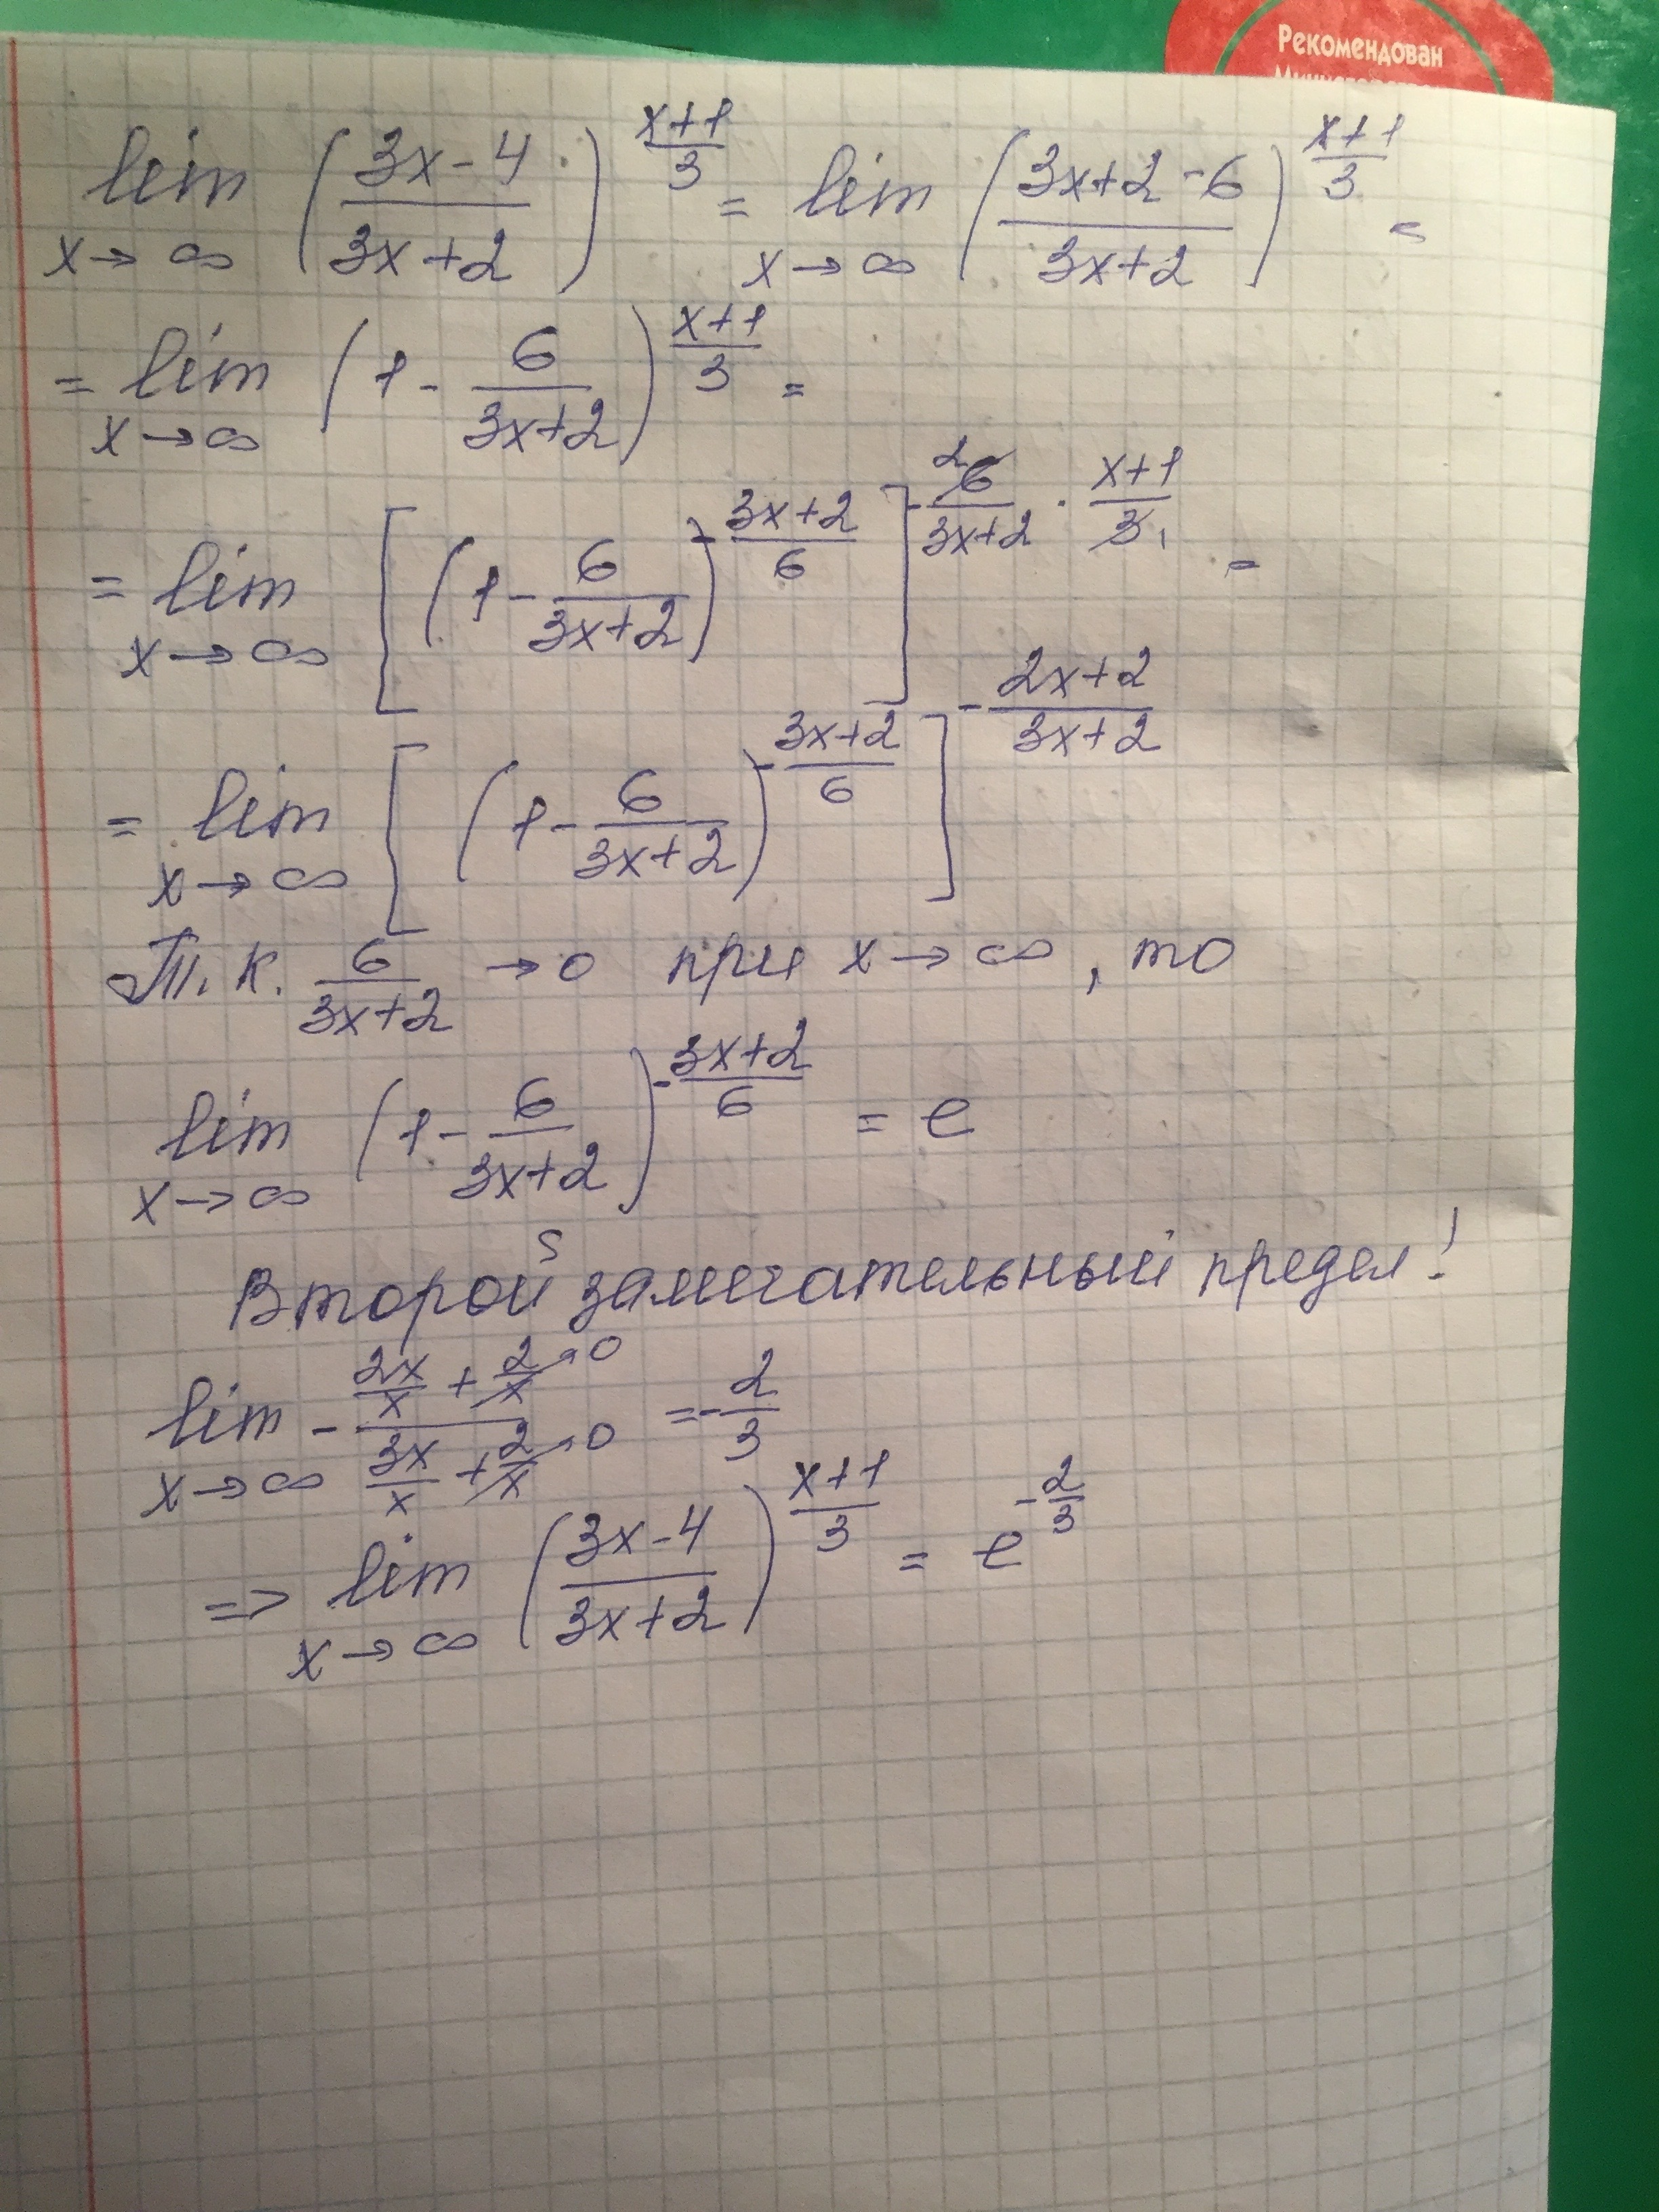 Рекомендован
lim x→∞ ((3x-4)/(3x+2))^((x+1)/3) = lim x→∞ ((3x+2-6)/(3x+2))^((x+1)/3) =
= lim x→∞ (1 - 6/(3x+2))^((x+1)/3) =
= lim x→∞ [(1 - 6/(3x+2))^(-(3x+2)/6)]^(-6/(3x+2) · (x+1)/3) =
= lim x→∞ [(1 - 6/(3x+2))^(-(3x+2)/6)]^(-(2x+2)/(3x+2))
Т.к. 6/(3x+2) → 0 при x→∞, то
lim x→∞ (1 - 6/(3x+2))^(-(3x+2)/6) = e
Второй замечательный предел!
lim x→∞ -(2x/x + 2/x→0)/(3x/x + 2/x→0) = -2/3
=> lim x→∞ ((3x-4)/(3x+2))^((x+1)/3) = e^(-2/3)